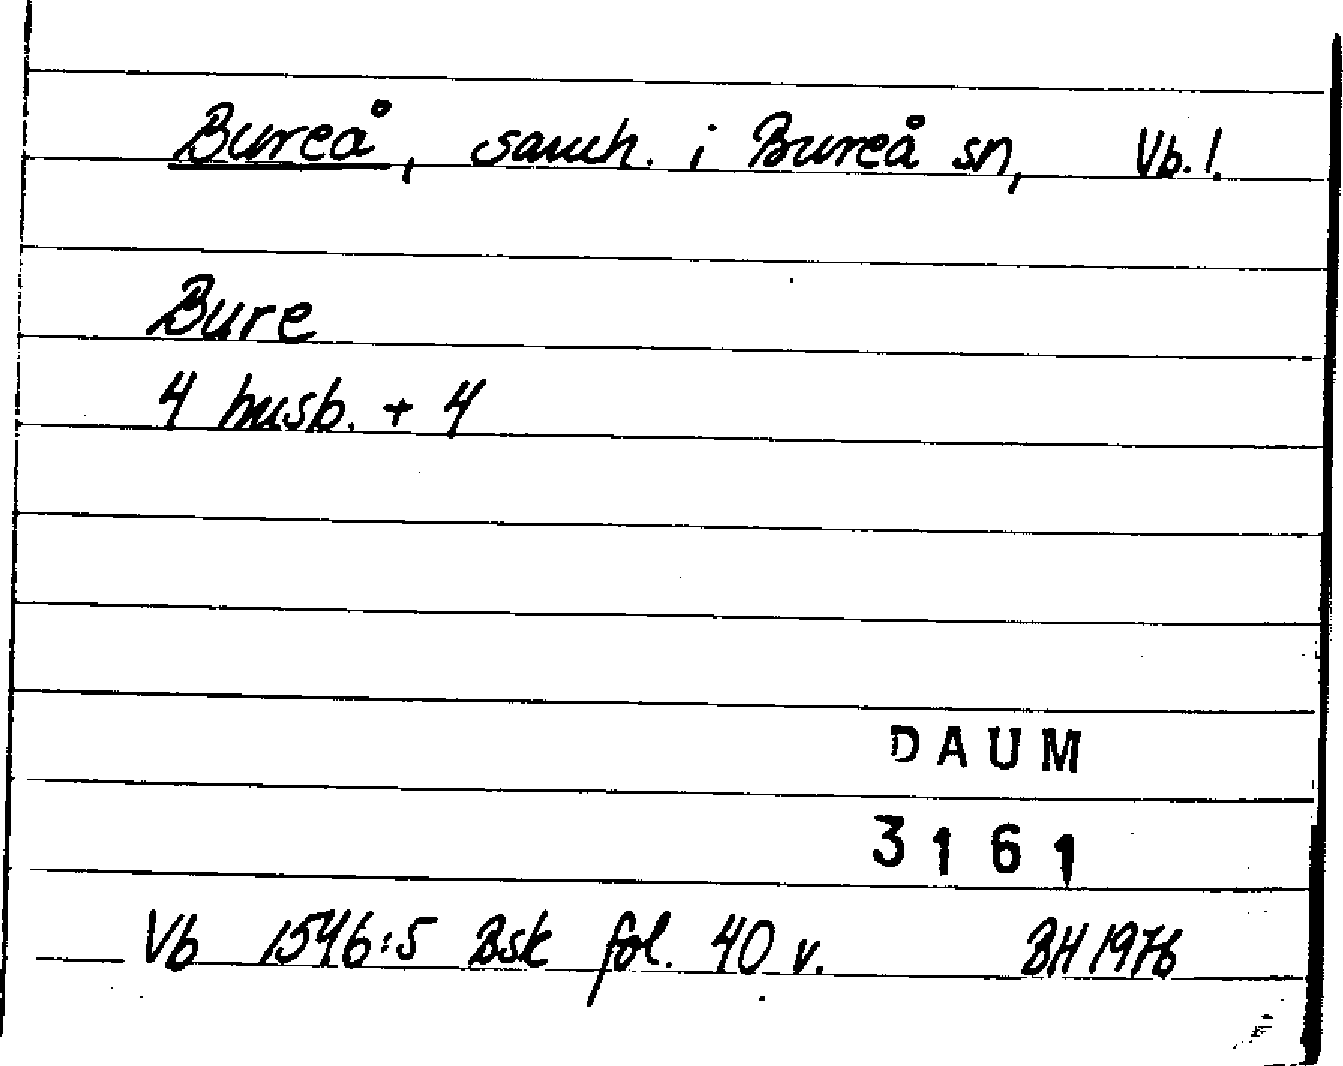 Bureå, samh. i Bureå sn, Vb. l.
Bure
4 husb. + 4
DAUM
3161
Vb 1546:5 Bsk fol. 40 v. BH 1976